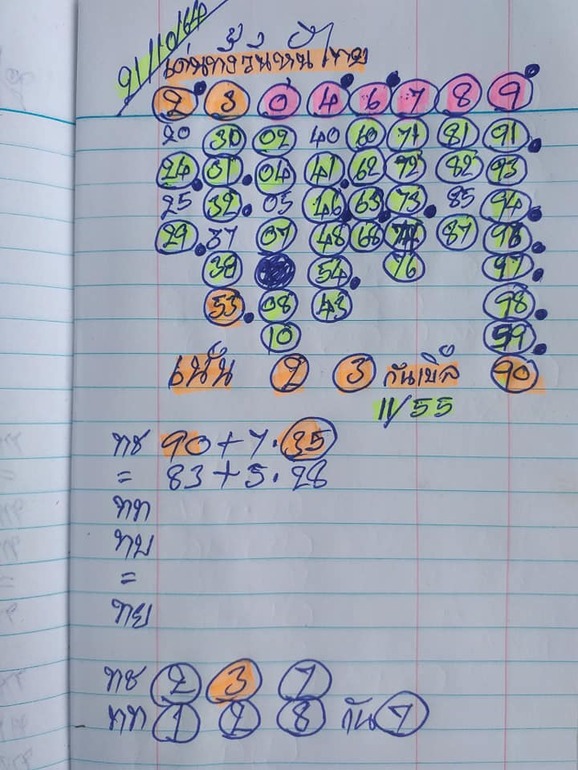 21/10/64
เด่นทั้งวันหุ้นไทย
2 3 0 4 6 7 8 9
20 30 02 40 60 71 81 91
24 31 04 41 62 72 82 93
25 32 05 46 63 73 85 94
29 37 07 48 68 74 87 96
39 54 76 97
53 08 43 98
10 59
เน้น 2 3 กันเบิ้ล 90
11/55
ทช 90+7.35
= 83+5.28
ทท
ทบ
=
ทย
ทช 2 3 7
ทท 1 2 8 กัน 7